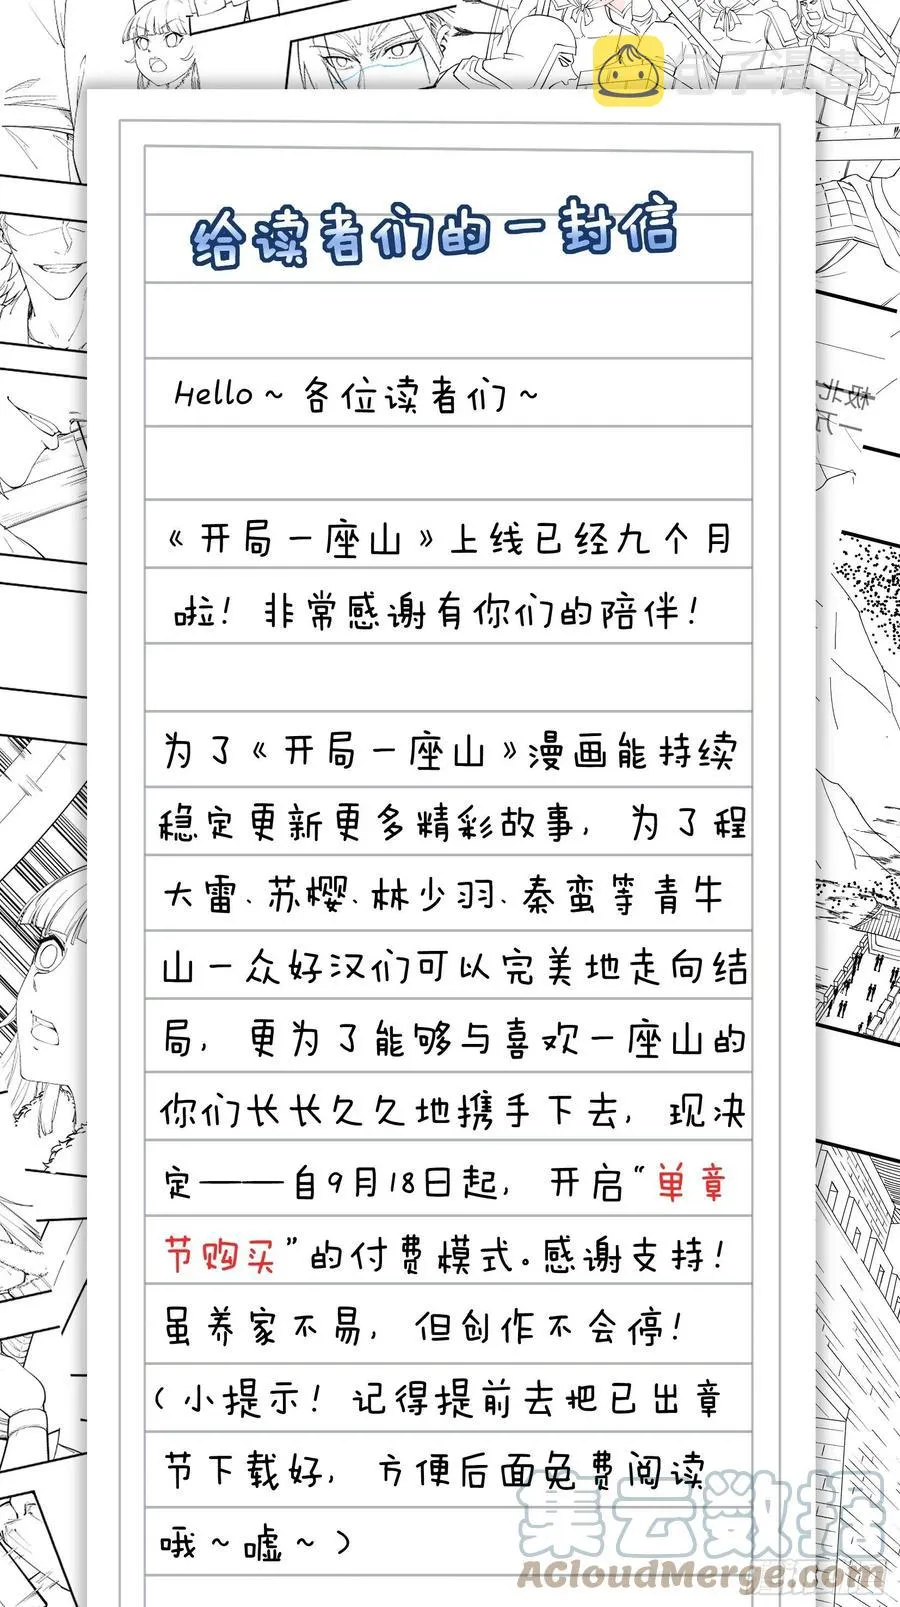 包子漫畫
给读者们的一封信
Hello~各位读者们~
《开局一座山》上线已经九个月
啦！非常感谢有你们的陪伴！
为了《开局一座山》漫画能持续
稳定更新更多精彩故事，为了程
大雷、苏樱、林少羽、秦蛮等青牛
山一众好汉们可以完美地走向结
局，更为了能够与喜欢一座山的
你们长长久久地携手下去，现决
定——自9月18日起，开启“单章
节购买”的付费模式。感谢支持！
虽养家不易，但创作不会停！
（小提示！记得提前去把已出章
节下载好，方便后面免费阅读
哦~嘘~）
极北
一万
集云数据
ACloudMerge.com